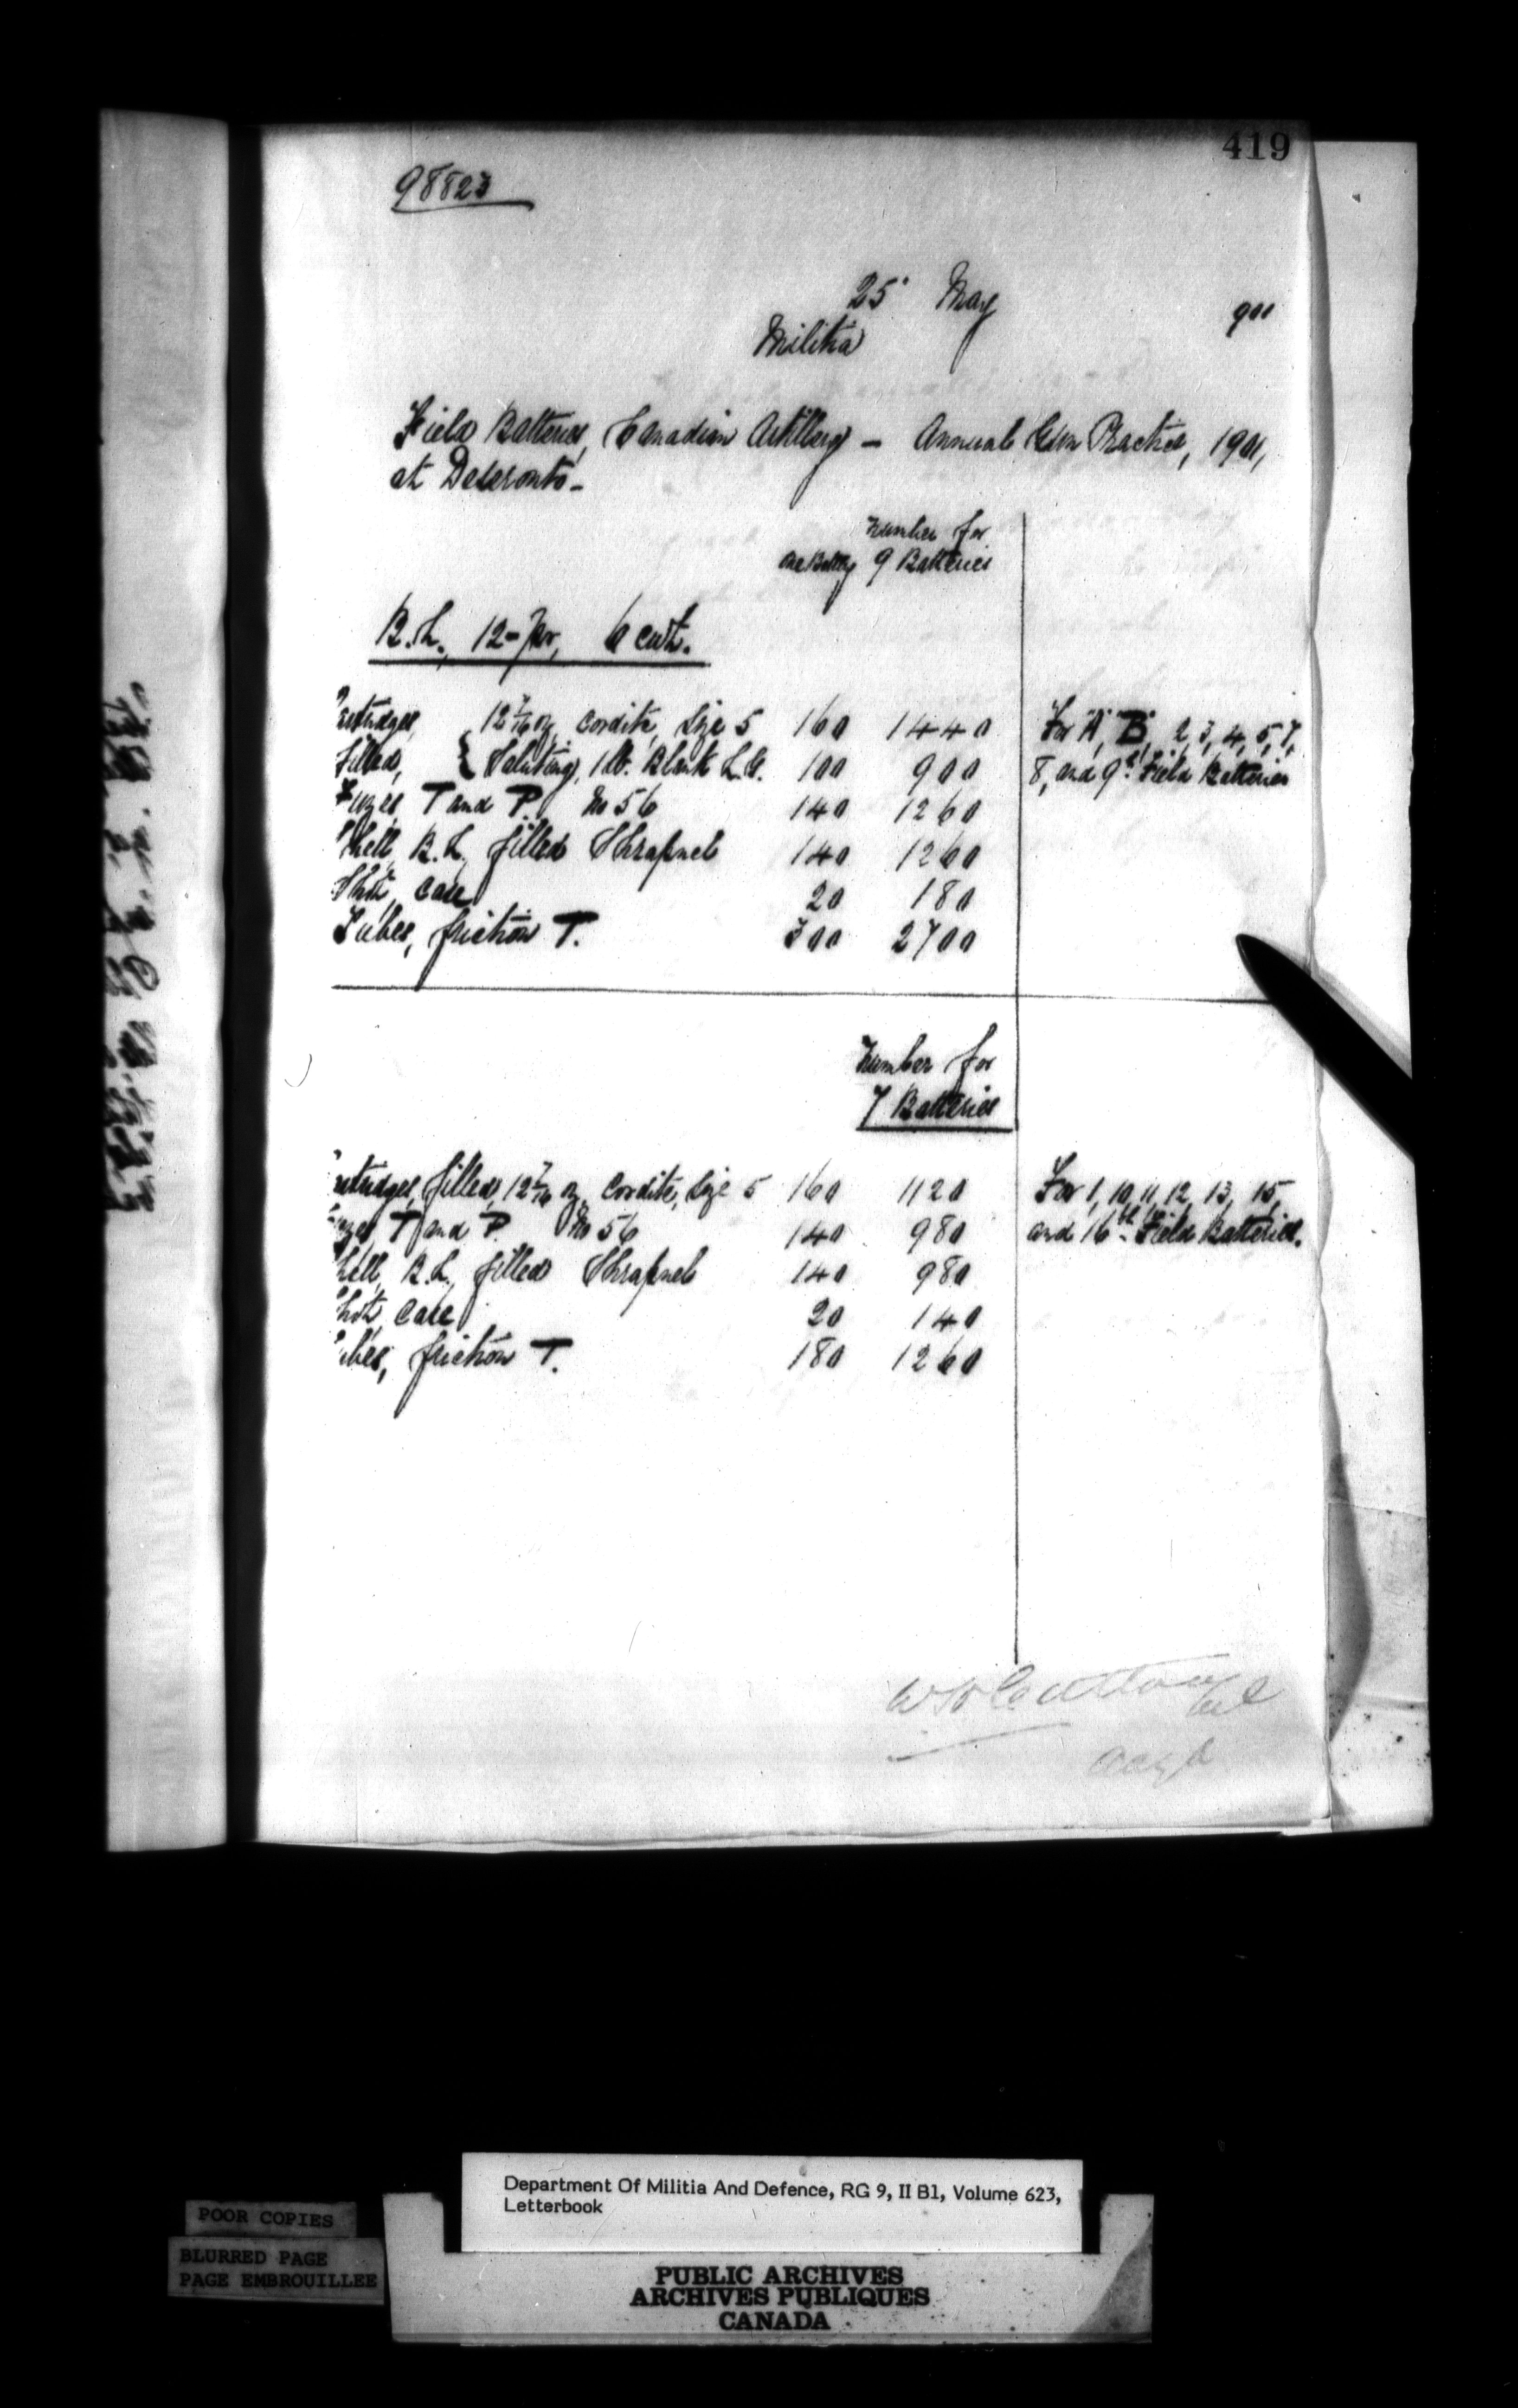 419
98823
25 May 901
Militia
Field Batteries, Canadian Artillery – Annual Gun Practice, 1901,
at Deseronto –
Number for
One Battery 9 Batteries
B.L., 12-pr, 6 cwt.
Cartridges, { 12 7/16 oz Cordite, Size 5 160 1440 For "A", "B", 2, 3, 4, 5, 7,
filled, { Saluting, 1 lb. Blank L.G. 100 900 8, and 9th Field Batteries
Fuzes T and P. No 56 140 1260
Shell, B.L. filled Shrapnel 140 1260
Shot, Case 20 180
Tubes, friction T. 300 2700
Number for
7 Batteries
Cartridges, filled, 12 7/16 oz. Cordite, Size 5 160 1120 For 1, 10, 11, 12, 13, 15,
Fuzes T and P. No 56 140 980 and 16th Field Batteries.
Shell, B.L., filled Shrapnel 140 980
Shot, Case 20 140
Tubes, friction T. 180 1260
Department Of Militia And Defence, RG 9, II B1, Volume 623,
Letterbook
POOR COPIES
BLURRED PAGE
PAGE EMBROUILLEE
PUBLIC ARCHIVES
ARCHIVES PUBLIQUES
CANADA